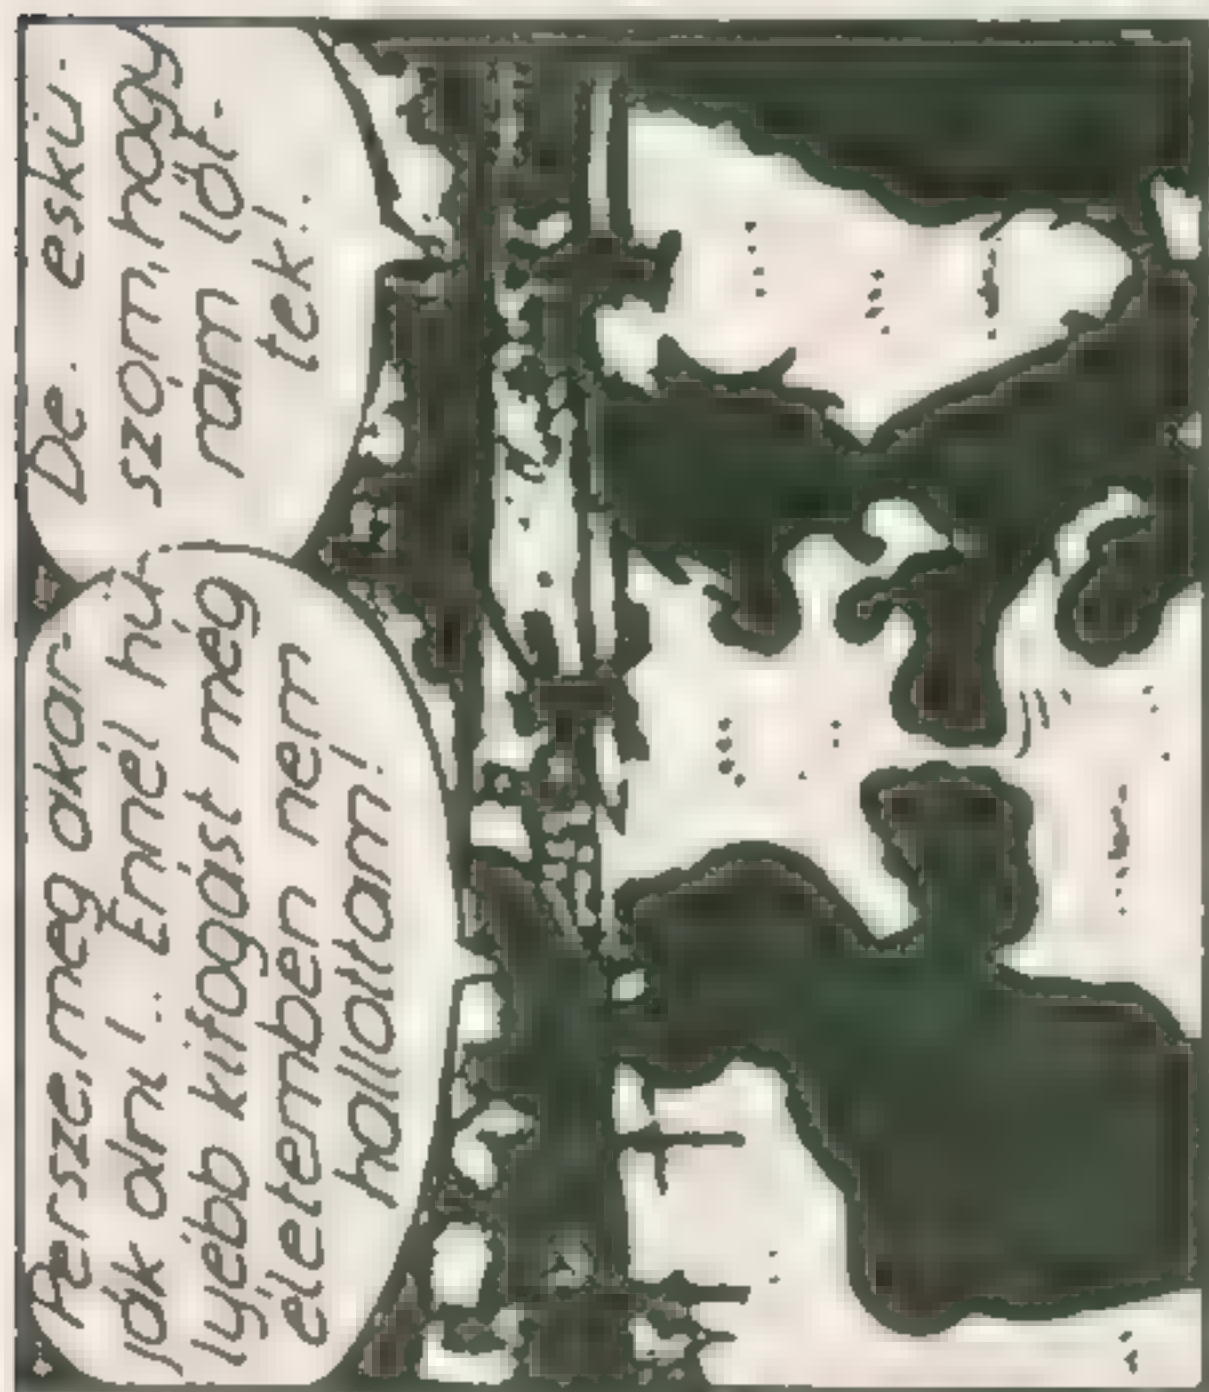 Persze, meg akar-
ják ölni!.. Ennél hü-
lyébb kifogást még
életemben nem
hallottam!
De.. eskü-
szöm, hogy
rám lőt-
tek!..